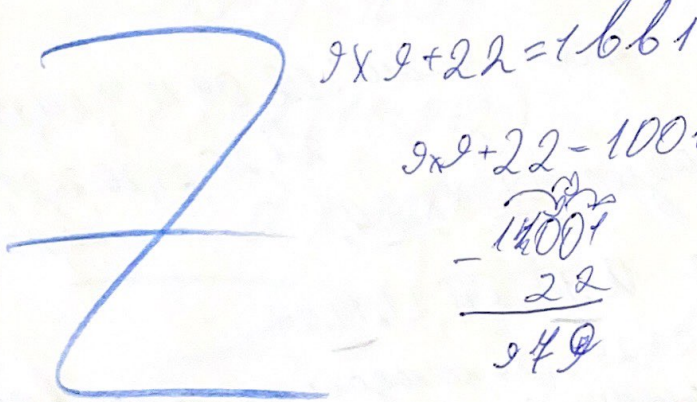 Z
9x9+22=1bb1
9x9+22=1001
- 1001
22
979